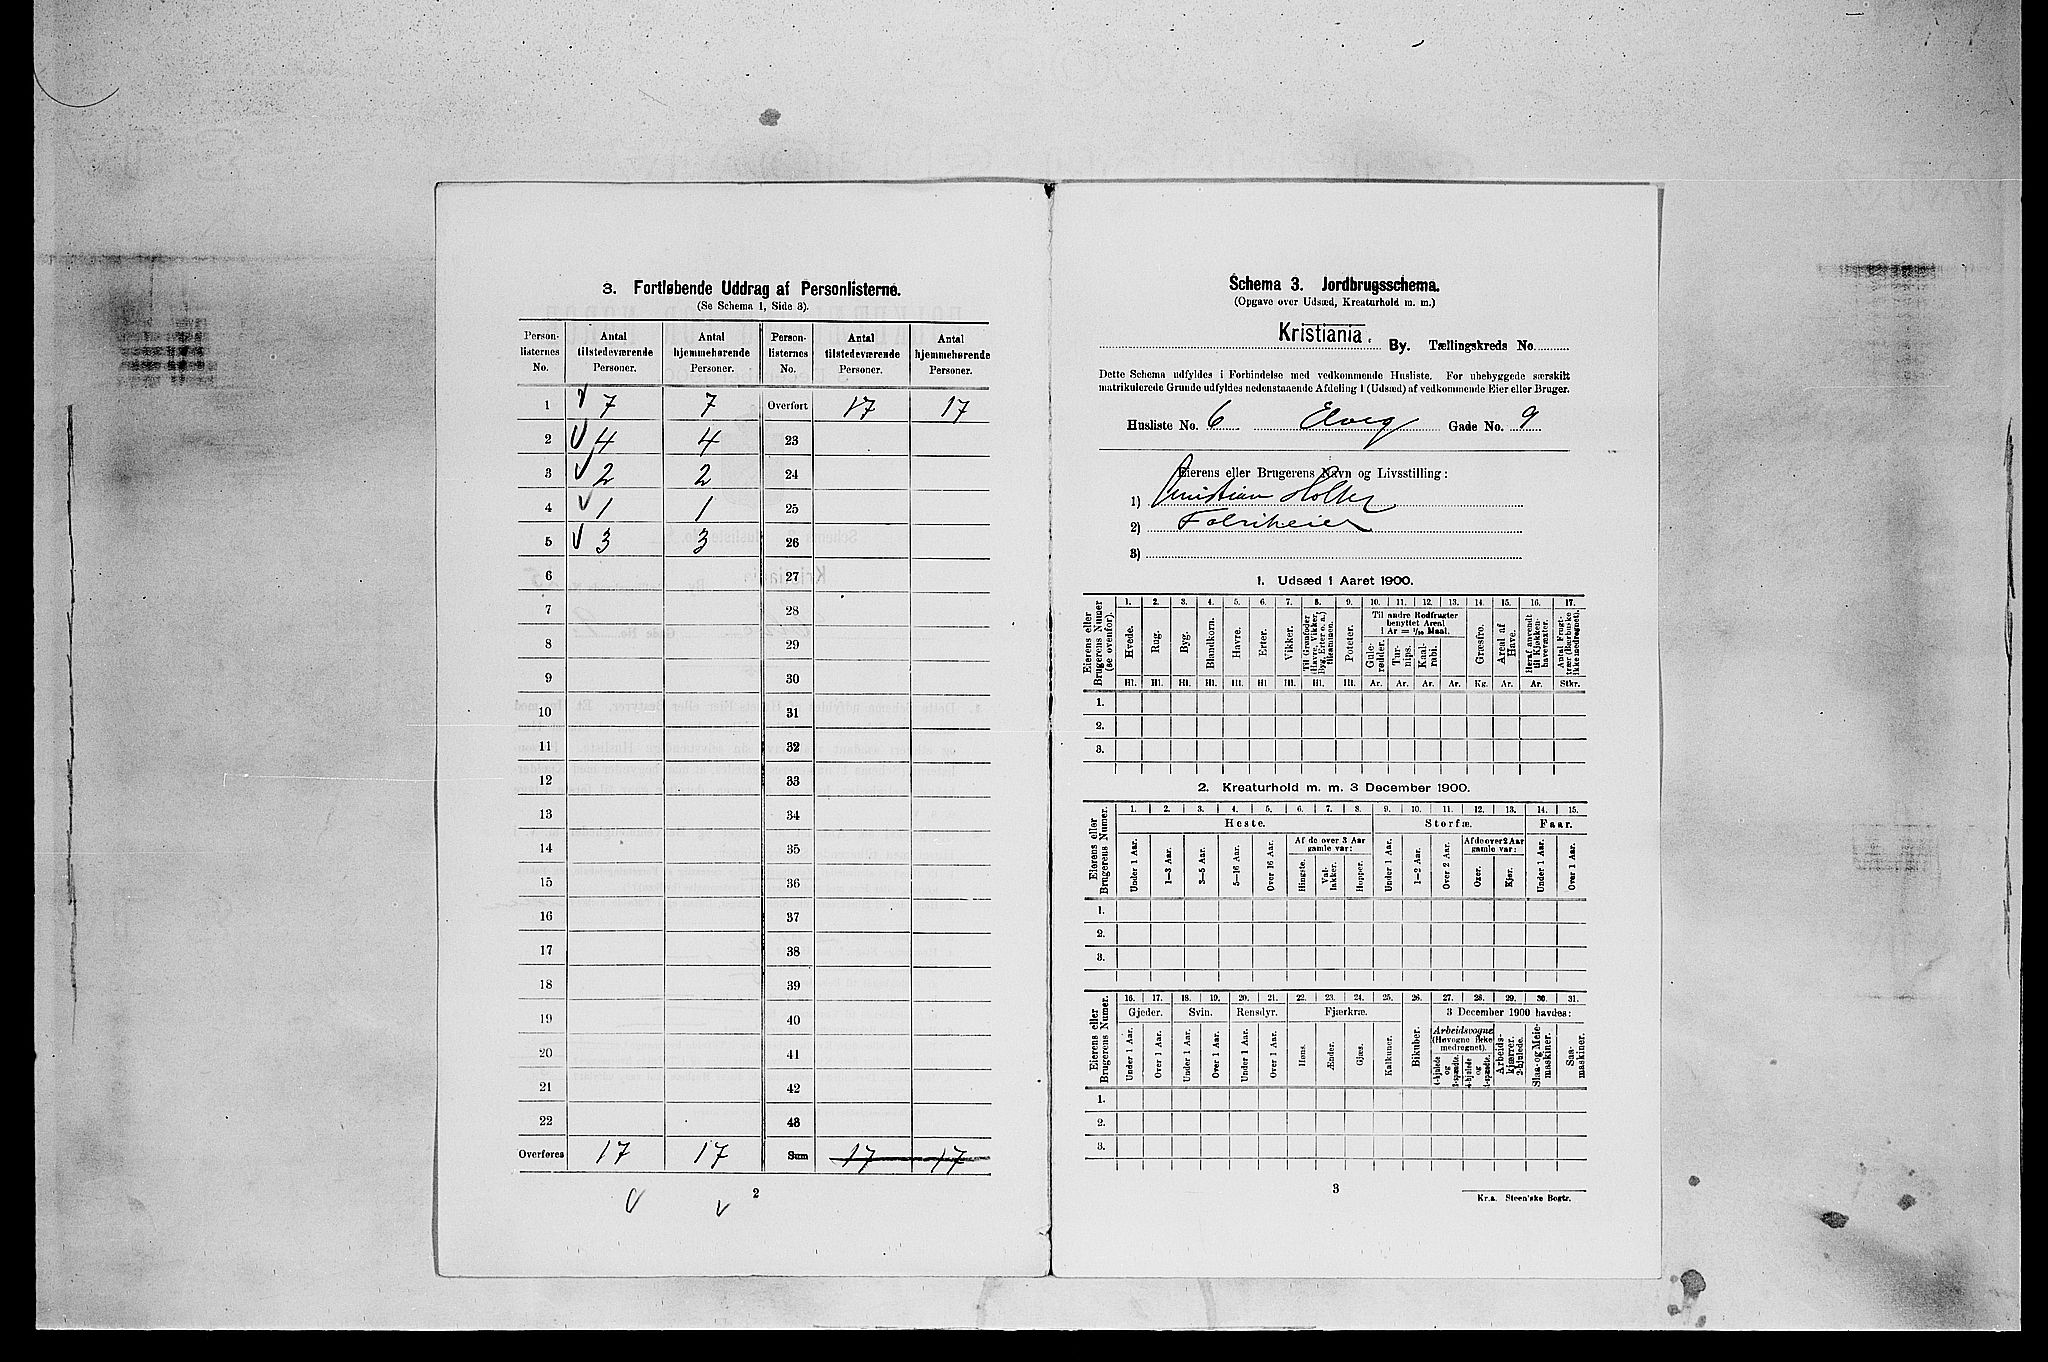 3. Fortløbende Uddrag af Personlisterne.
(Se Schema 1, Side 3).
Person-listernes No. | Antal tilstedeværende Personer. | Antal hjemmehørende Personer. | Person-listernes No. | Antal tilstedeværende Personer. | Antal hjemmehørende Personer.
1 | 7 | 7 | Overført | 17 | 17
2 | 4 | 4 | 23
3 | 2 | 2 | 24
4 | 1 | 1 | 25
5 | 3 | 3 | 26
6 | 27
7 | 28
8 | 29
9 | 30
10 | 31
11 | 32
12 | 33
13 | 34
14 | 35
15 | 36
16 | 37
17 | 38
18 | 39
19 | 40
20 | 41
21 | 42
22 | 43
Overføres | 17 | 17 | Sum | 17 | 17
2
Schema 3. Jordbrugsschema.
(Opgave over Udsæd, Kreaturhold m. m.)
Kristiania. By. Tællingskreds No.
Dette Schema udfyldes i Forbindelse med vedkommende Husliste. For ubebyggede særskilt
matrikulerede Grunde udfyldes nedenstaaende Afdeling 1 (Udsæd) af vedkommende Eier eller Bruger.
Husliste No. 6 Elveg Gade No. 9
Eierens eller Brugerens Navn og Livsstilling:
1) Christian Holter
2) Fabrikeier
3)
1. Udsæd i Aaret 1900.
Eierens eller Brugerens Numer (se ovenfor).
1. | 2. | 3. | 4. | 5. | 6. | 7. | 8. | 9. | 10. | 11. | 12. | 13. | 14. | 15. | 16. | 17.
Til andre Rodfrugter benyttet Areal 1 Ar = 1/10 Maal.
Hvede. | Rug. | Byg. | Blandkorn. | Havre. | Erter. | Vikker. | Til Grønfoder (Havre, Vikker, Byg, Erter o. a.) tilsammen. | Poteter. | Gule-rødder. | Tur-nips. | Kaal-rabi. | Græsfrø. | Areal af Have. | Heraf anvendt til Kjøkken-havevæxter. | Antal Frugt-trær (Bærbuske ikke medregnet).
Hl. | Hl. | Hl. | Hl. | Hl. | Hl | Hl. | Hl. | Hl. | Ar. | Ar. | Ar. | Ar. | Kg. | Ar. | Ar. | Stkr.
1.
2.
3.
2. Kreaturhold m. m. 3 December 1900.
Eierens eller Brugerens Numer.
1. | 2. | 3. | 4. | 5. | 6. | 7. | 8. | 9. | 10. | 11. | 12. | 13. | 14. | 15.
Heste. | Storfæ. | Faar.
Af de over 3 Aar gamle var: | Af de over 2 Aar gamle var:
Under 1 Aar. | 1—3 Aar. | 3—5 Aar. | 5—16 Aar. | Over 16 Aar. | Hingste. | Val-lakker. | Hopper. | Under 1 Aar. | 1—2 Aar. | Over 2 Aar. | Oxer. | Kjør. | Under 1 Aar. | Over 1 Aar.
1.
2.
3.
Eierens eller Brugerens Numer.
16. | 17. | 18. | 19. | 20. | 21. | 22. | 23. | 24. | 25. | 26. | 27. | 28. | 29. | 30. | 31.
Gjeder. | Svin. | Rensdyr. | Fjærkræ. | 3 December 1900 havdes:
Arbeidsvogne (Høvogne ikke medregnet).
Under 1 Aar. | Over 1 Aar. | Under 1 Aar. | Over 1 Aar. | Under 1 Aar. | Over 1 Aar. | Høns. | Ænder. | Gjæs. | Kalkuner. | Bikuber. | 4-hjulede og 2-spændte. | 4-hjulede og 1-spændte. | Arbeids-kjærrer. 2-hjulede. | Slaa- og Meie-maskiner. | Saa-maskiner.
1.
2.
3.
3
Kr.a. Steen'ske Bogtr.